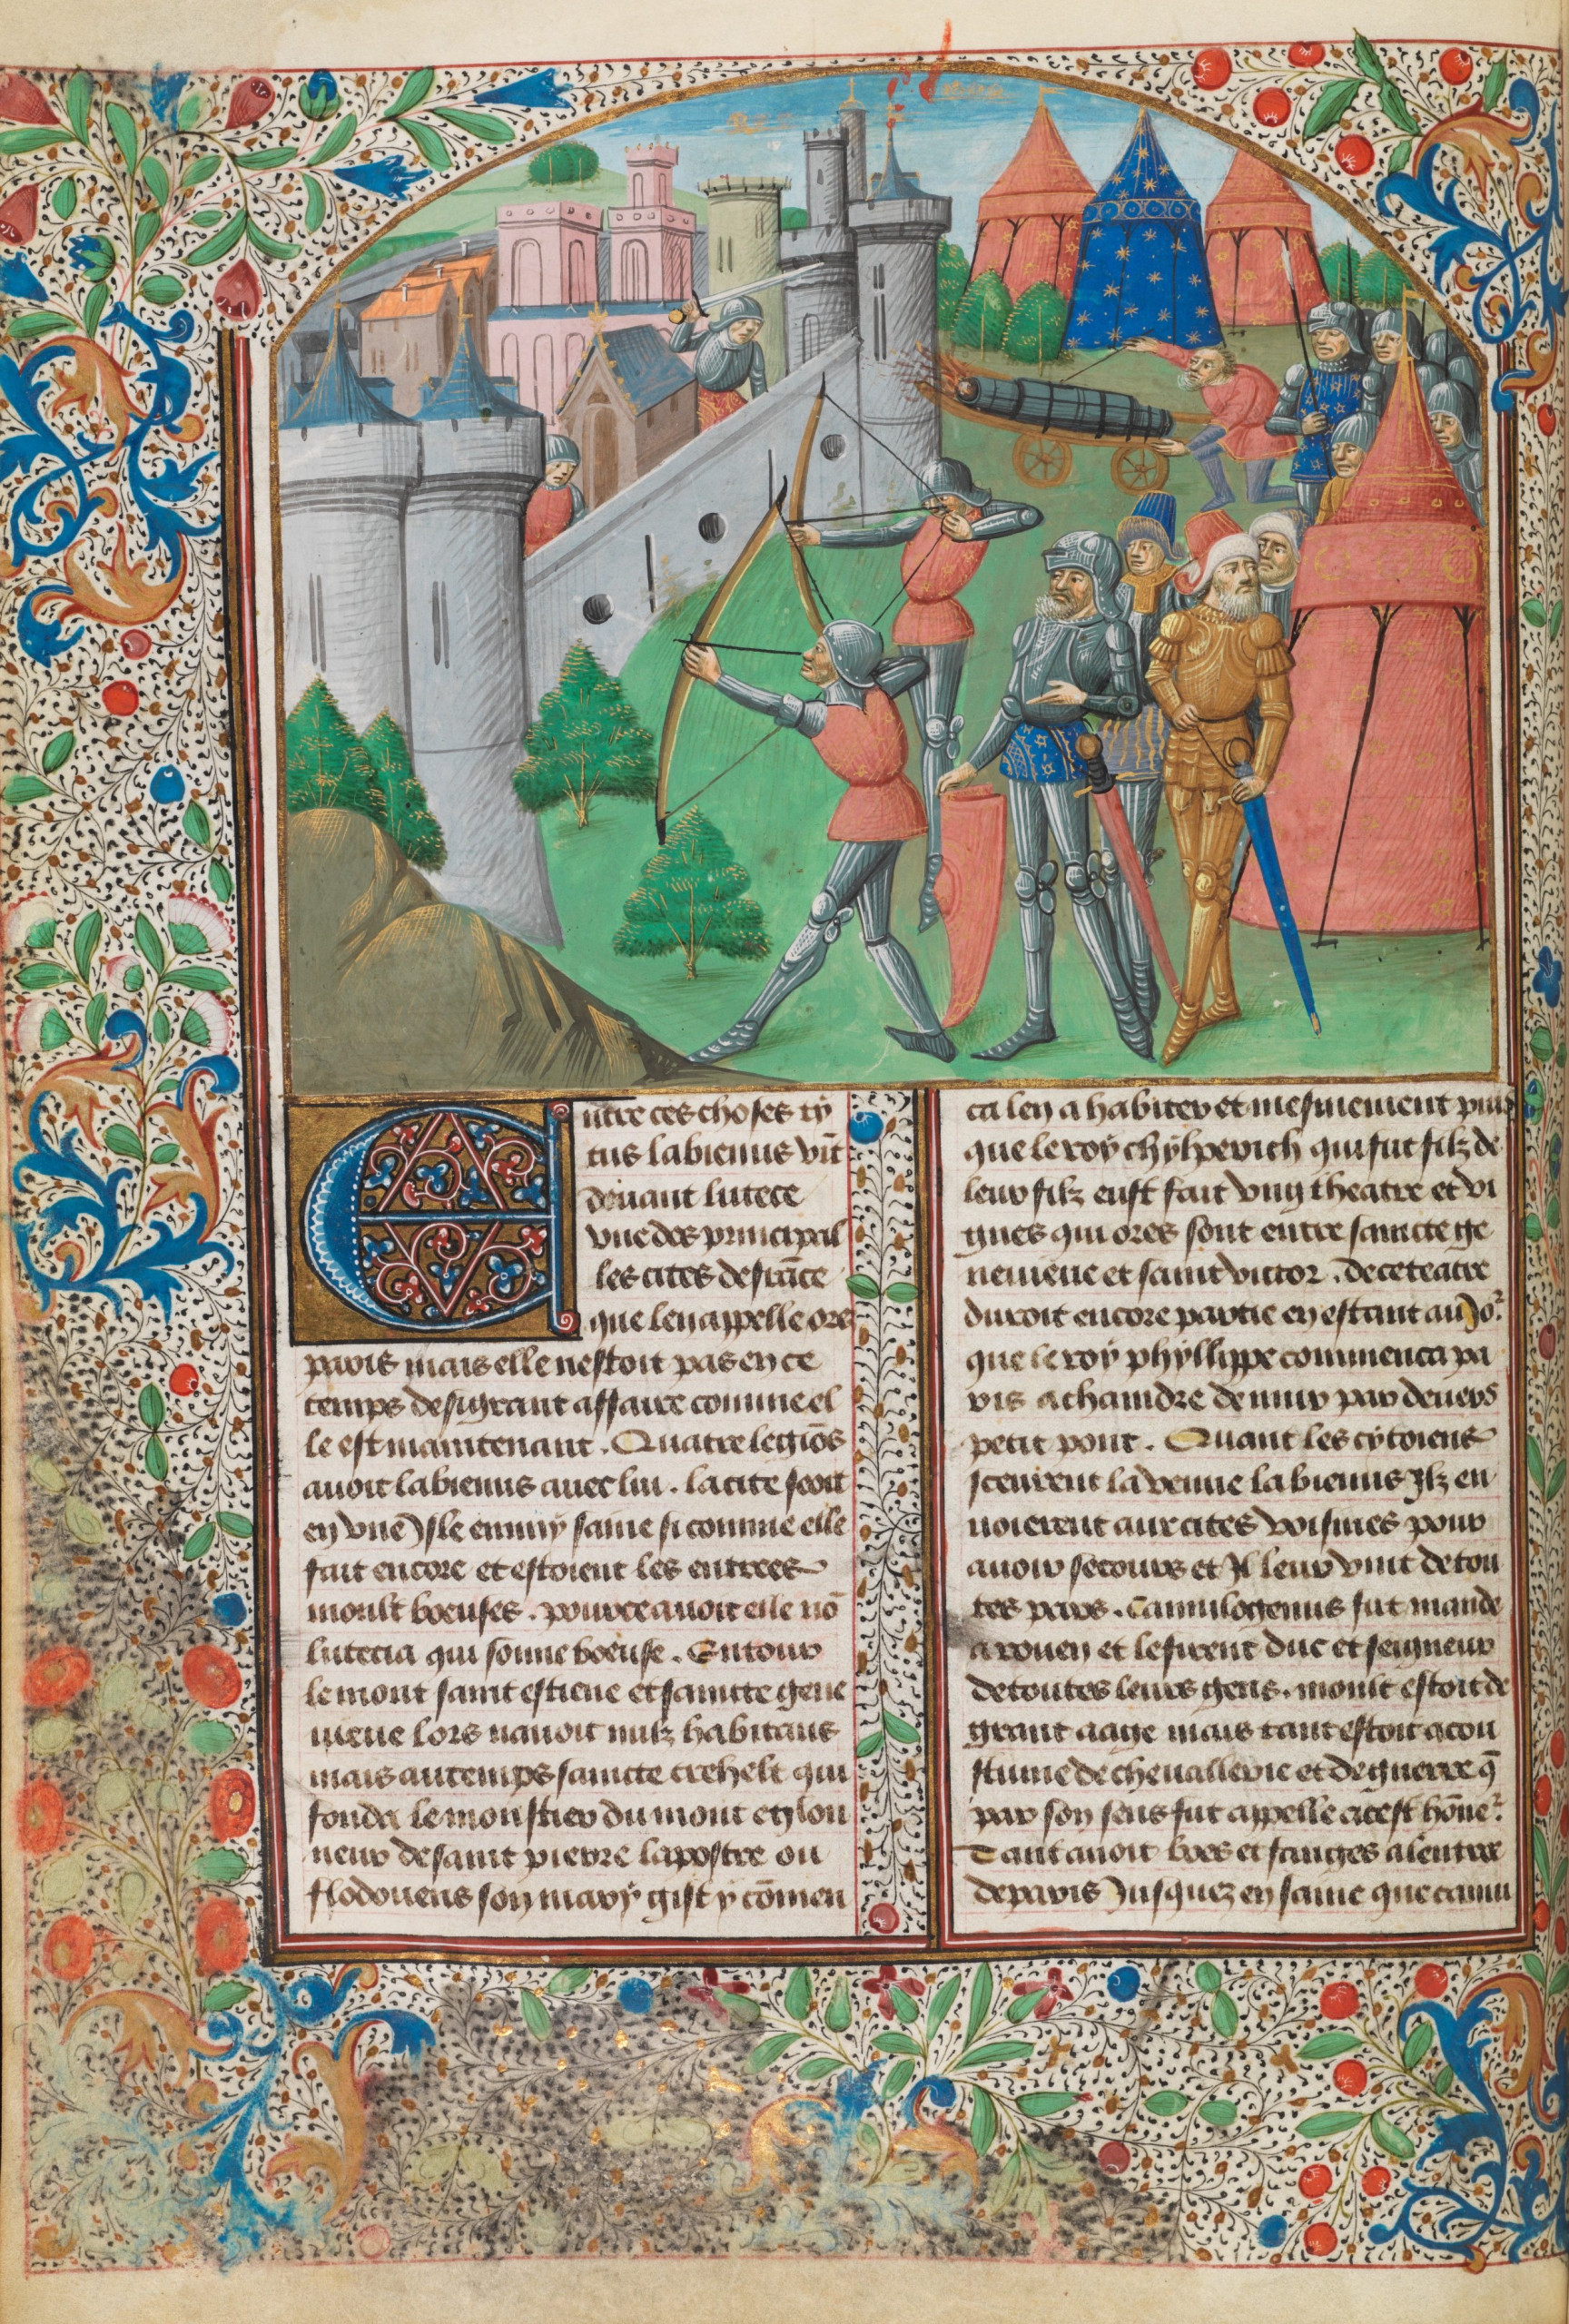 Entre ces choses ty
tus labienus vīt
deuant lutece
vne des principal
les cites de frāce
que len appelle ores
paris mais elle nestoit pas en ce
temps de si grant affaire comme el
le est maintenant. Quatre legiōs
auoit labienus auec lui. la cite seoit
en vne Isle enmy saine si comme elle
fait encore et estoient les entrees
moult boeuses. pource auoit elle nō
lutecia qui sonne boeuse. Entour
le mont saint estiene et saincte gene
uieue lors nauoit nulz habitans
mais au temps saincte crehelt qui
fonda le monstier du mont en lon
neur de saint pierre lapostre ou
flodoueus son mary gist y cōmen
ca len a habiter et mesmement puis
que le roy chylperich qui fut filz de
leur filz eust fait vng theatre et vi
gnes qui ores sont entre saincte ge
neuieue et saint victor. de ce teatre
duroit encore partie en estant au Jor
que le roy phyllippe commenca pa
ris a chaindre de mur par deuers
petit pont. Quant les cytoiens
sceurent la venue labienus Ilz en
uoierent aux cites voisines pour
auoir secours et Il leur vint de tou
tes pars. Camulogenus fut mande
a rouen et le firent duc et seigneur
de toutes leurs gens. moult estoit de
grant aage mais tant estoit acou
stume de cheuallerie et de guerre q̄
par son sens fut appelle a cest hōner
Tant auoit boes et fanges a lentree
de paris Jusquez en saine que camu